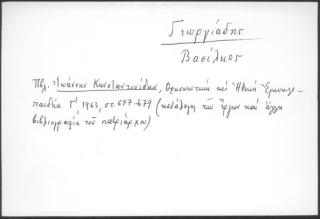 Γεωργιάδης
Βασίλειος
Πβλ. Ἰωάννου Κωνσταντινίδου, Θρησκευτικὴ καὶ Ἠθικὴ Ἐγκυκλο-
παιδεία Γ' 1963, στ. 677-679 (κατάλογος τῶν ἔργων καὶ ἄλλη
βιβλιογραφία τοῦ πατριάρχου)